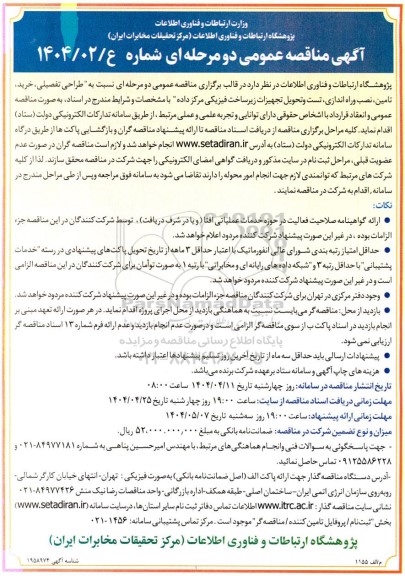 وزارت ارتباطات و فناوری اطلاعات
پژوهشگاه ارتباطات و فناوری اطلاعات (مرکز تحقیقات مخابرات ایران)
آگهی مناقصه عمومی دو مرحله ای شماره ع/۱۴۰۴/۰۲
پژوهشگاه ارتباطات و فناوری اطلاعات در نظر دارد در قالب برگزاری مناقصه عمومی دو مرحله ای نسبت به "طراحی تفصیلی، خرید،
تامین، نصب و راه اندازی، تست و تحویل تجهیزات زیرساخت فیزیکی مرکز داده" با مشخصات و شرایط مندرج در اسناد، به صورت مناقصه
عمومی و انعقاد قرارداد با اشخاص حقوقی دارای توانایی و تجربه علمی و عملی مرتبط، از طریق سامانه تدارکات الکترونیکی دولت (ستاد)
اقدام نماید. کلیه مراحل برگزاری مناقصه از دریافت اسناد مناقصه تا ارائه پیشنهاد مناقصه گران و بازگشایی پاکت ها از طریق درگاه
سامانه تدارکات الکترونیکی دولت (ستاد) به آدرس www.setadiran.ir انجام خواهد شد و لازم است مناقصه گران در صورت عدم
عضویت قبلی، مراحل ثبت نام در سایت مذکور و دریافت گواهی امضای الکترونیکی را جهت شرکت در مناقصه محقق سازند. لذا از کلیه
شرکت های مرتبط که توانمندی لازم جهت انجام امور محوله را دارند تقاضا می شود به سامانه فوق مراجعه و پس از طی مراحل مندرج در
سامانه، اقدام به شرکت در مناقصه نمایند.
نکات:
● ارائه گواهینامه صلاحیت فعالیت در حوزه خدمات عملیاتی افتا (و یا در شرف دریافت)، توسط شرکت کنندگان در این مناقصه جزء
الزامات بوده، در غیر این صورت پیشنهاد شرکت کننده مردود اعلام خواهد شد.
● حداقل امتیاز رتبه بندی شورای عالی انفورماتیک با اعتبار حداقل ۳ ماهه از تاریخ تحویل پاکت های پیشنهادی در رسته "خدمات
پشتیبانی" با حداقل رتبه ۳ و "شبکه داده های رایانه ای و مخابراتی" با رتبه ۱ به صورت توأمان برای شرکت کنندگان در این مناقصه الزامی
است و در غیر این صورت پیشنهاد شرکت کننده مردود خواهد شد.
● وجود دفتر مرکزی در تهران برای شرکت کنندگان مناقصه جزء الزامات بوده و در غیر این صورت پیشنهاد شرکت کننده مردود خواهد شد.
● بازدید از محل: مناقصه گر می بایست نسبت به هماهنگی بازدید از محل اجرای پروژه اقدام نماید. در هر صورت ارائه تعهد مبنی بر
انجام بازدید در اسناد پاکت ب از سوی مناقصه گر الزامی است و در صورت عدم انجام بازدید و عدم ارائه فرم شماره ۱۲ اسناد مناقصه گر
ارزیابی نمی شود.
● پیشنهادات ارسالی باید حداقل سه ماه از تاریخ آخرین روز تسلیم پیشنهادها اعتبار داشته باشد.
● هزینه های چاپ آگهی و سامانه ستاد برعهده شرکت برنده می باشد.
تاریخ انتشار مناقصه در سامانه: روز چهارشنبه تاریخ ۱۴۰۴/۰۴/۱۱ ساعت ۰۸:۰۰
مهلت زمانی دریافت اسناد مناقصه از سایت: ساعت ۱۹:۰۰ روز چهارشنبه تاریخ ۱۴۰۴/۰۴/۲۵
مهلت زمانی ارائه پیشنهاد: ساعت ۱۹:۰۰ روز سه شنبه تاریخ ۱۴۰۴/۰۵/۰۷
میزان و نوع تضمین شرکت در مناقصه: ضمانت نامه بانکی به مبلغ ۵۲.۰۰۰.۰۰۰.۰۰۰ ریال.
- جهت پاسخگوئی به سوالات فنی و انجام هماهنگی های مرتبط، با مهندس امیرحسین پناهی به شماره ۸۴۹۷۷۱۸۱-۰۲۱ و
۰۹۱۲۵۵۸۶۲۲۸ تماس حاصل نمائید.
-آدرس دستگاه مناقصه گذار جهت ارائه پاکت الف (اصل ضمانت نامه بانکی) به صورت فیزیکی: تهران- انتهای خیابان کارگر شمالی-
روبه روی سازمان انرژی اتمی ایران- ساختمان اصلی- طبقه همکف- اداره بازرگانی- واحد مناقصات رضا نیک منش ۸۴۹۷۷۴۲۶-۰۲۱
نشانی سایت مناقصه گذار: www.itrc.ac.ir اطلاعات تماس دفاتر ثبت نام سایر استان ها، در سایت سامانه (www.setadiran.ir)
بخش "ثبت نام / پروفایل تامین کننده / مناقصه گر" موجود است. مرکز تماس پشتیبانی سامانه: ۱۴۵۶-۰۲۱
پژوهشگاه ارتباطات و فناوری اطلاعات (مرکز تحقیقات مخابرات ایران)
م الف ۱۱۵۵
شناسه آگهی ۱۹۵۸۹۷۴
ParsNamadData
پایگاه اطلاع رسانی مناقصه و مزایده